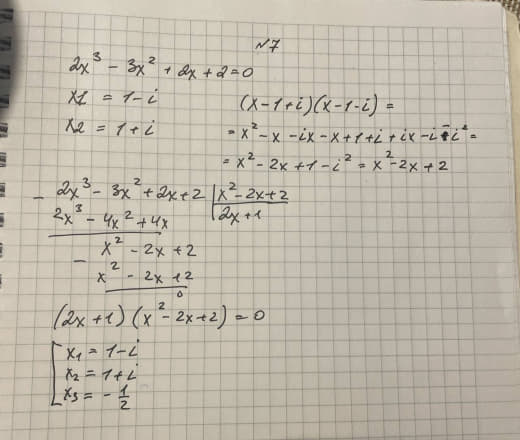 №7
2x³ - 3x² + 2x + 2 = 0
x1 = 1 - i
x2 = 1 + i
(x-1+i)(x-1-i) =
= x² - x - ix - x + 1 + i + ix - i - i² =
= x² - 2x + 1 - i² = x² - 2x + 2
- 2x³ - 3x² + 2x + 2 | x² - 2x + 2
2x³ - 4x² + 4x | 2x + 1
- x² - 2x + 2
x² - 2x + 2
0
(2x + 1)(x² - 2x + 2) = 0
x₁ = 1 - i
x₂ = 1 + i
x₃ = - 1/2